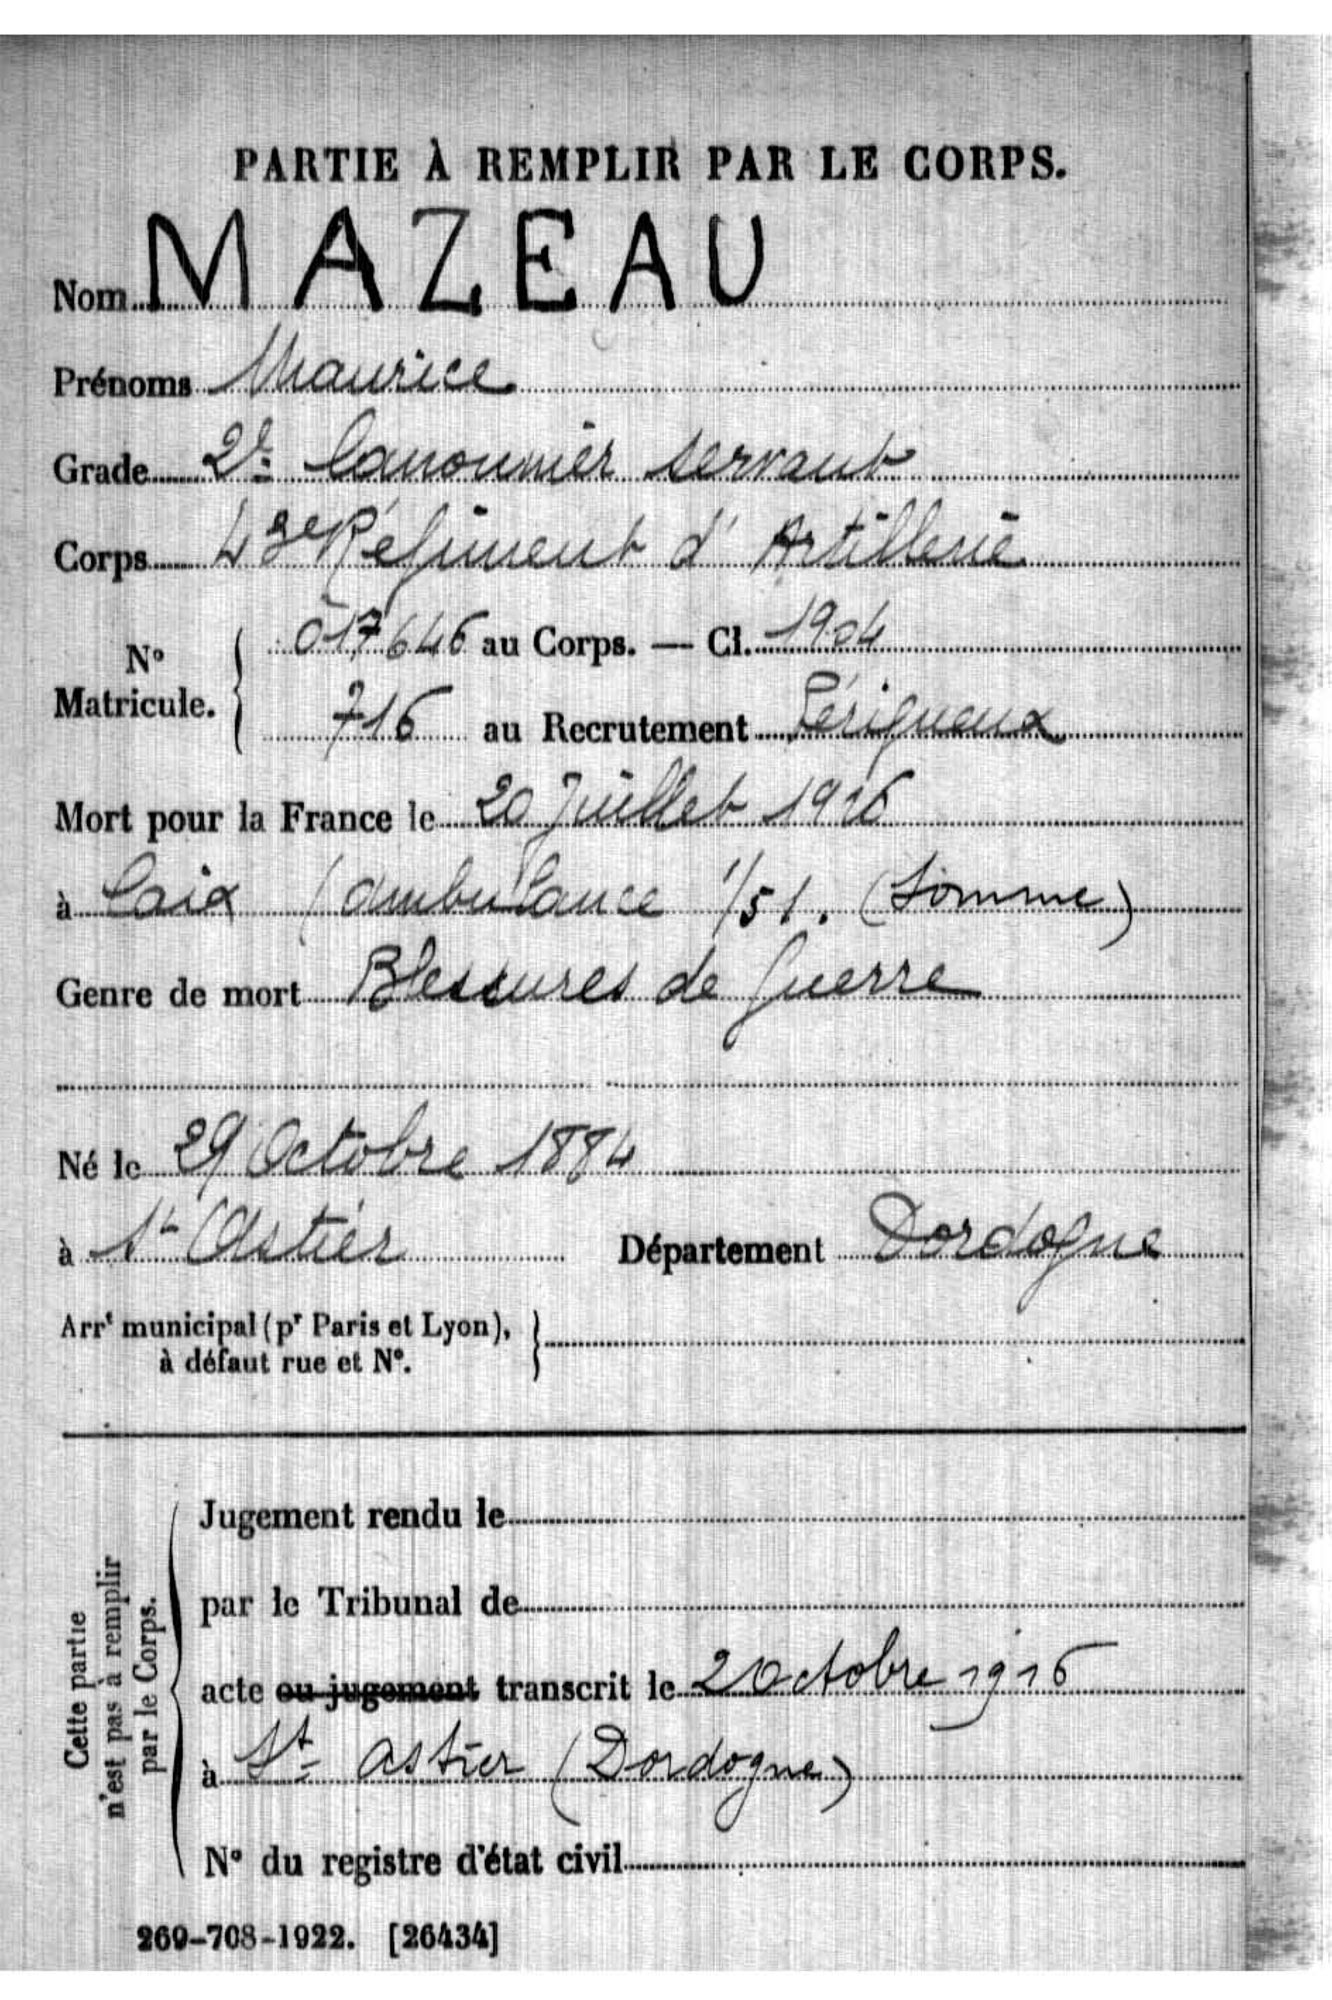 PARTIE À REMPLIR PAR LE CORPS.
Nom MAZEAU
Prénoms Maurice
Grade 2e Canonnier servant
Corps 43e Régiment d'Artillerie
No Maticule. 017646 au Corps. — Cl. 1904
716 au Recrutement Périgueux
Mort pour la France le 20 Juillet 1916
à Caix (ambulance 1/51. (Somme)
Genre de mort Blessures de Guerre
Né le 29 Octobre 1884
à St Astier Département Dordogne
Arrt municipal (pr Paris et Lyon),
à défaut rue et No.
Cette partie
n'est pas à remplir
par le Corps.
Jugement rendu le
par le Tribunal de
acte ou jugement transcrit le 2 octobre 1916
à St Astier (Dordogne)
No du registre d'état civil
269-708-1922. [26434]